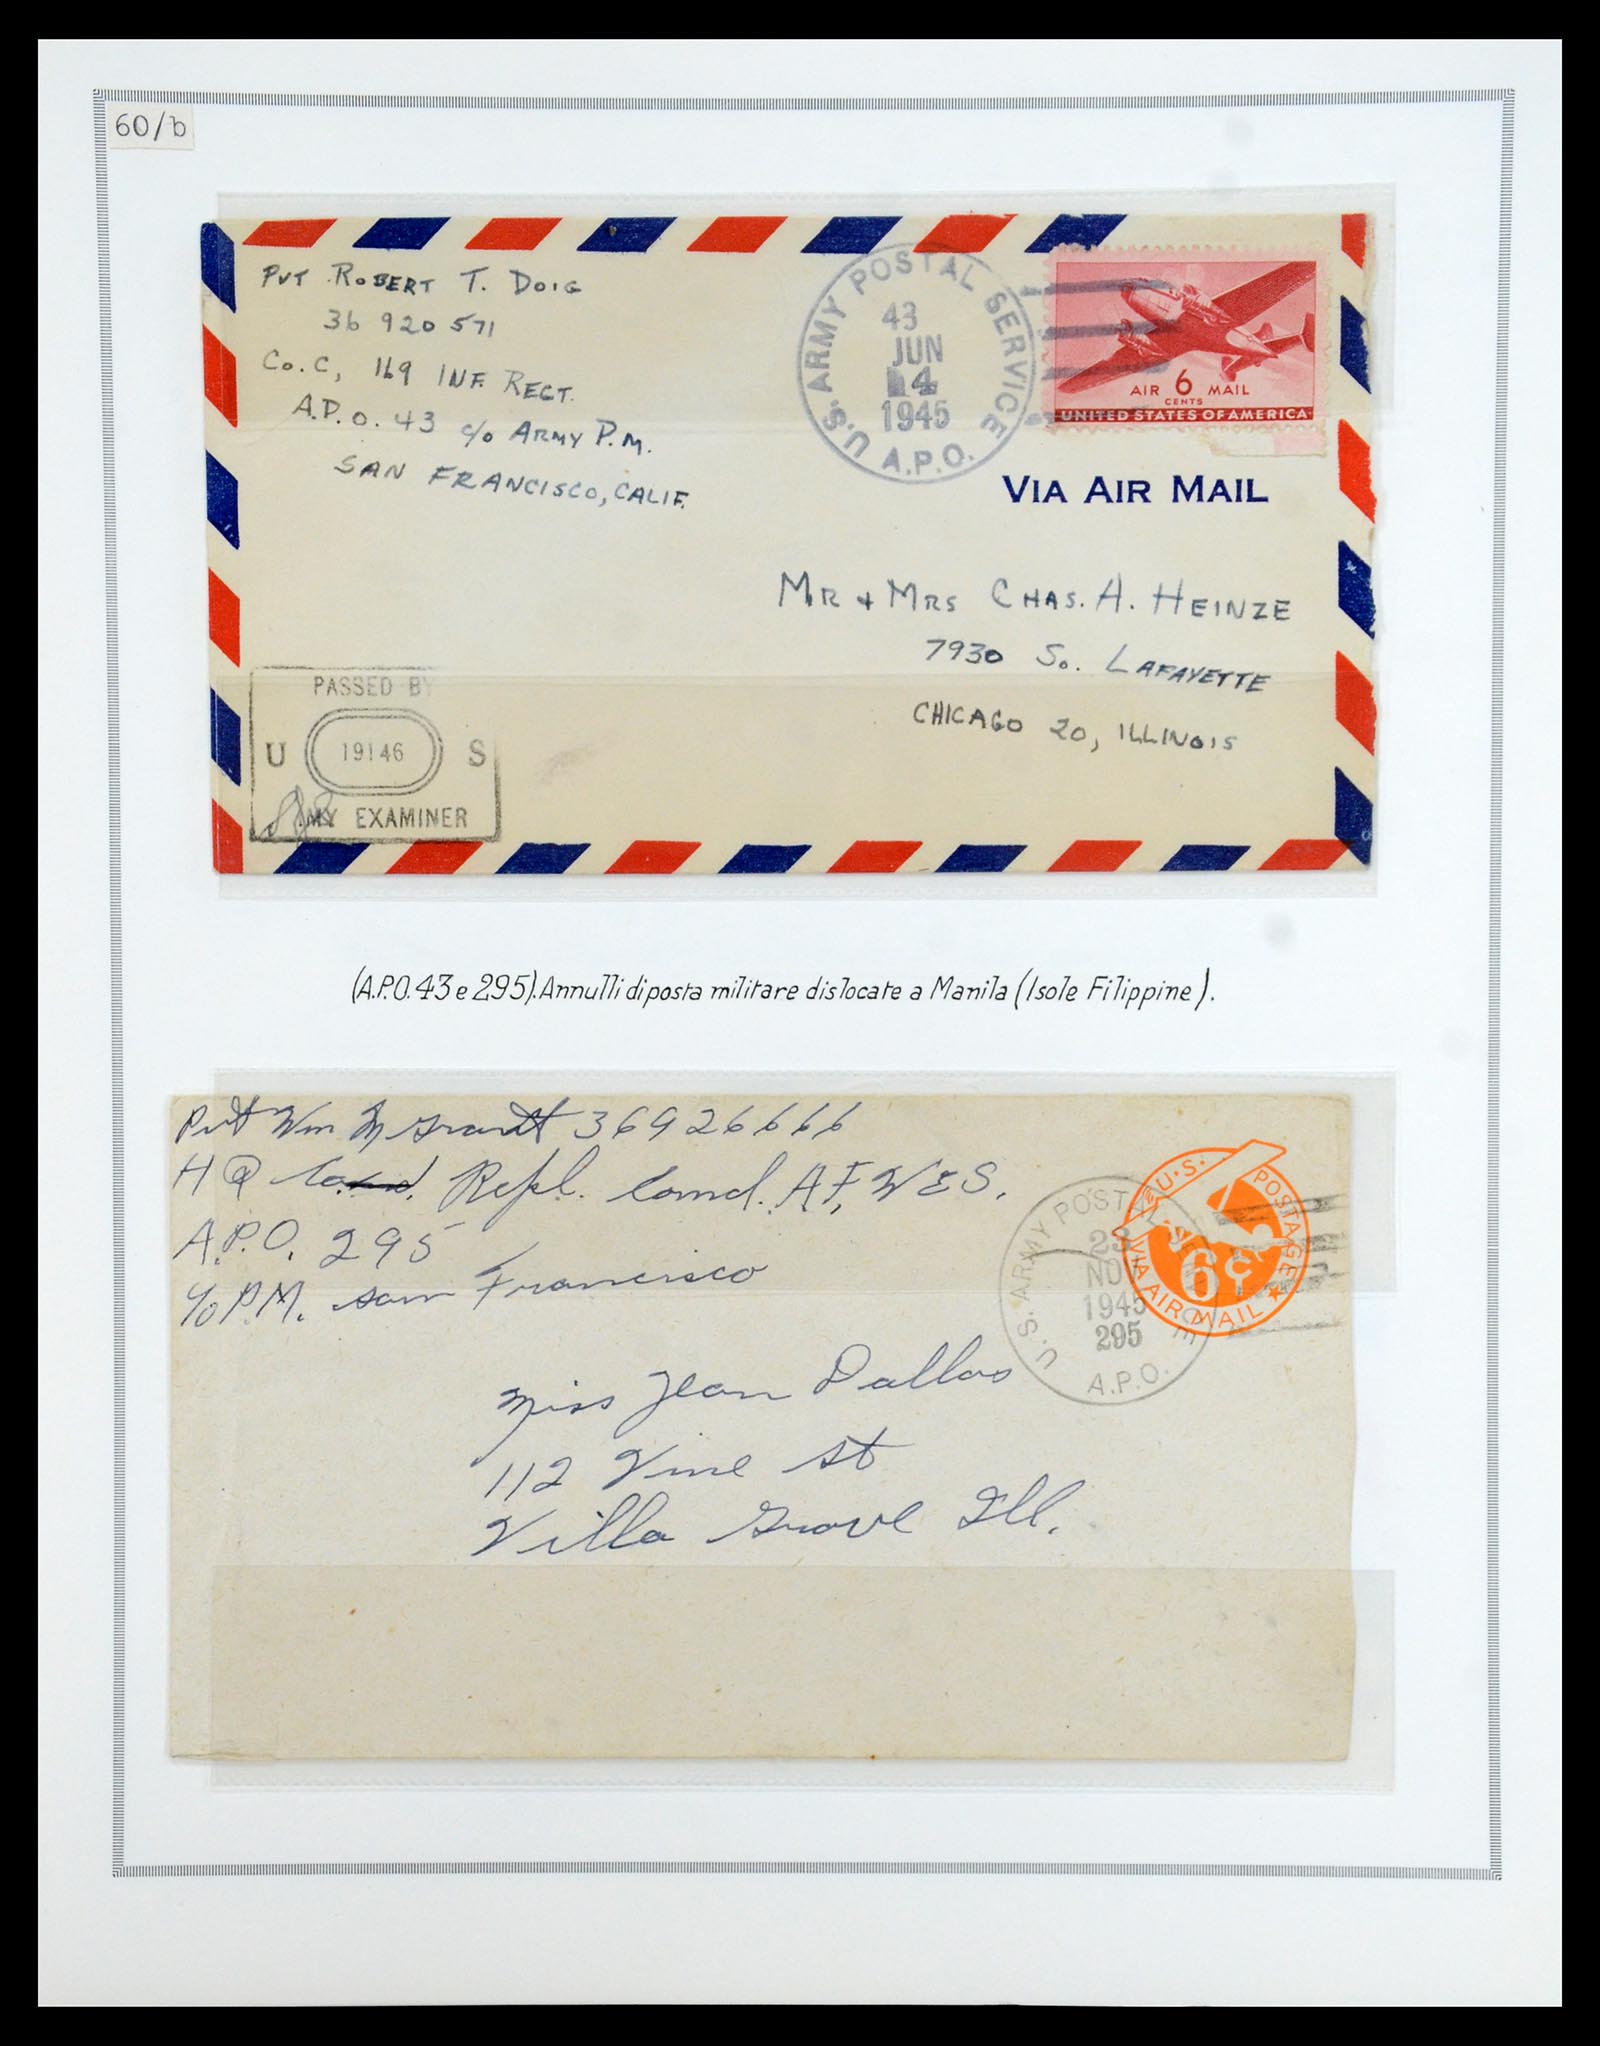 60/b
PVT ROBERT T. DOIG
36 920 571
CO. C, 169 INF. REGT.
A.P.O. 43 c/o ARMY P.M.
SAN FRANCISCO, CALIF.
U.S. ARMY POSTAL SERVICE
43
JUN
14
1945
A.P.O.
AIR 6 MAIL
CENTS
UNITED STATES OF AMERICA
VIA AIR MAIL
MR + MRS CHAS. A. HEINZE
7930 SO. LAFAYETTE
CHICAGO 20, ILLINOIS
PASSED BY
U 19146 S
ARMY EXAMINER
(A.P.O. 43 e 295). Annulli di posta militare dislocate a Manila (Isole Filippine).
Pvt Wm M Grant 36926666
HQ Repl. Comd. AF, WES.
A.P.O. 295
c/o P.M. San Francisco
U.S. POSTAGE
6¢
VIA AIR MAIL
U.S. ARMY POSTAL
23
NOV
1945
295
A.P.O.
Miss Jean Dallas
112 Vine St
Villa Grove Ill.